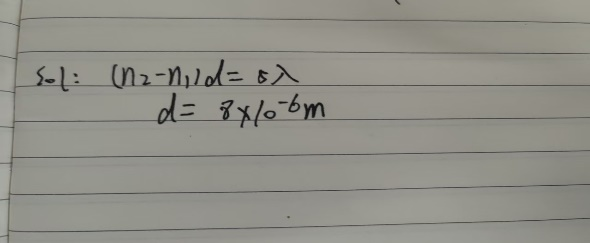 Sol: (n₂-n₁)d= 5λ
d= 8×10⁻⁶m